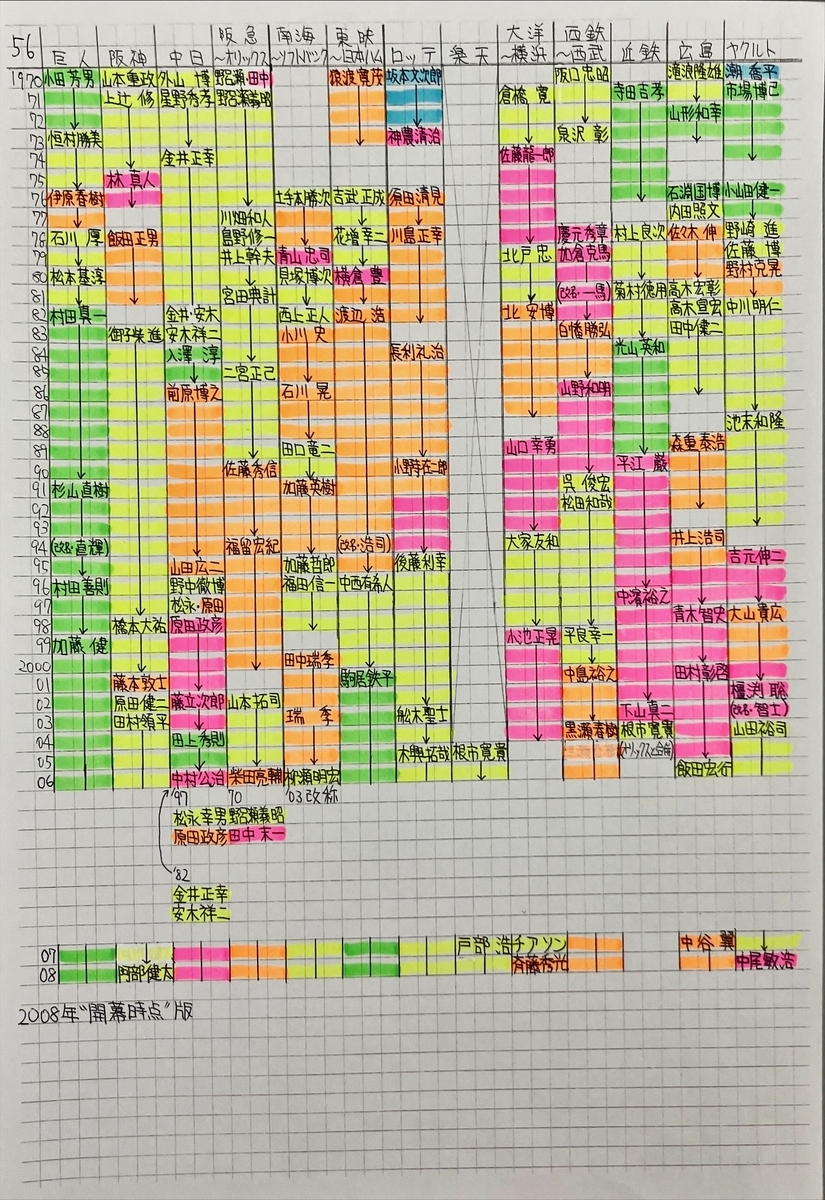 56 巨人 阪神 中日 阪急～オリックス 南海～ソフトバンク 東映～日本ハム ロッテ 楽天 大洋～横浜 西鉄～西武 近鉄 広島 ヤクルト
1970 小田芳男 山本重政 外山 博 野呂瀬・田中 猿渡寛茂 坂本文次郎 阪口忠昭 渡浪隆雄
71 上辻 修 星野秀孝 野呂瀬義昭 倉橋 寛 寺田吉孝 市場博己
72 山形和幸
73 恒村勝美 神農清治 泉沢 彰
74 金井正幸 佐藤龍一郎
75 林 真人
76 伊原春樹 土手本勝次 吉武正成 須田清見 石淵国博 小山田健一
77 川畑和人 内田照文
78 石川 厚 飯田正男 島野修一 花増幸二 川島正幸 慶元秀章 村上良次 佐々木 伸 野崎 進
79 井上幹夫 青山忠司 北戸 忠 加倉克馬 佐藤 博
80 松本基淳 貝塚博次 横倉 豊 野村克晃
81 宮田典計 (改名・一馬) 菊村徳用 高木宏彰
82 村田真一 金井・安木 西上正人 渡辺 浩 北 安博 高木宣宏 中川明仁
83 御子柴 進 安木祥二 小川 史 白幡勝弘 田中健二
84 入澤 淳 長利礼治 光山英和
85 二宮正己
86 前原博之 石川 晃 山野和明
87 池末和隆
88
89 田口竜二 山口幸勇 森重泰浩
90 佐藤秀信 小野寺在二郎 平江 巌
91 杉山直樹 加藤英樹 呉 俊宏
92 松田和哉
93
94 (改名・直輝) 福留宏紀 (改名・浩司) 大家友和 井上浩司
95 山田広二 加藤哲郎 後藤利幸 吉元伸二
96 村田善則 野中徹博 福田信一 中西有希人 中濱裕之
97 松永・原田 青木智史 大山貴広
98 橋本大祐 原田政彦 小池正晃 平良幸一
99 加藤 健
2000 田中瑞季 中島裕之 田村彰啓
01 藤本敦士 駒居鉄平 橿渕 聡
02 原田健二 藤立次郎 山本拓司 (改名・智士)
03 田村領平 瑞 季 舩木聖士 下山真二 山田裕司
04 田上秀則 黒瀬春樹 根市寛貴
05 木興拓哉 根市寛貴 (オリックスと合併)
06 中村公治 柴田亮輔 柳瀬明宏 飯田宏行
'97 70 '03改称
松永幸男 野呂瀬義昭
原田政彦 田中末一
'82
金井正幸
安木祥二
07 戸部 浩 チアソン 中谷 翼
08 阿部健太 斉藤秀光 中尾敏浩
2008年“開幕時点”版